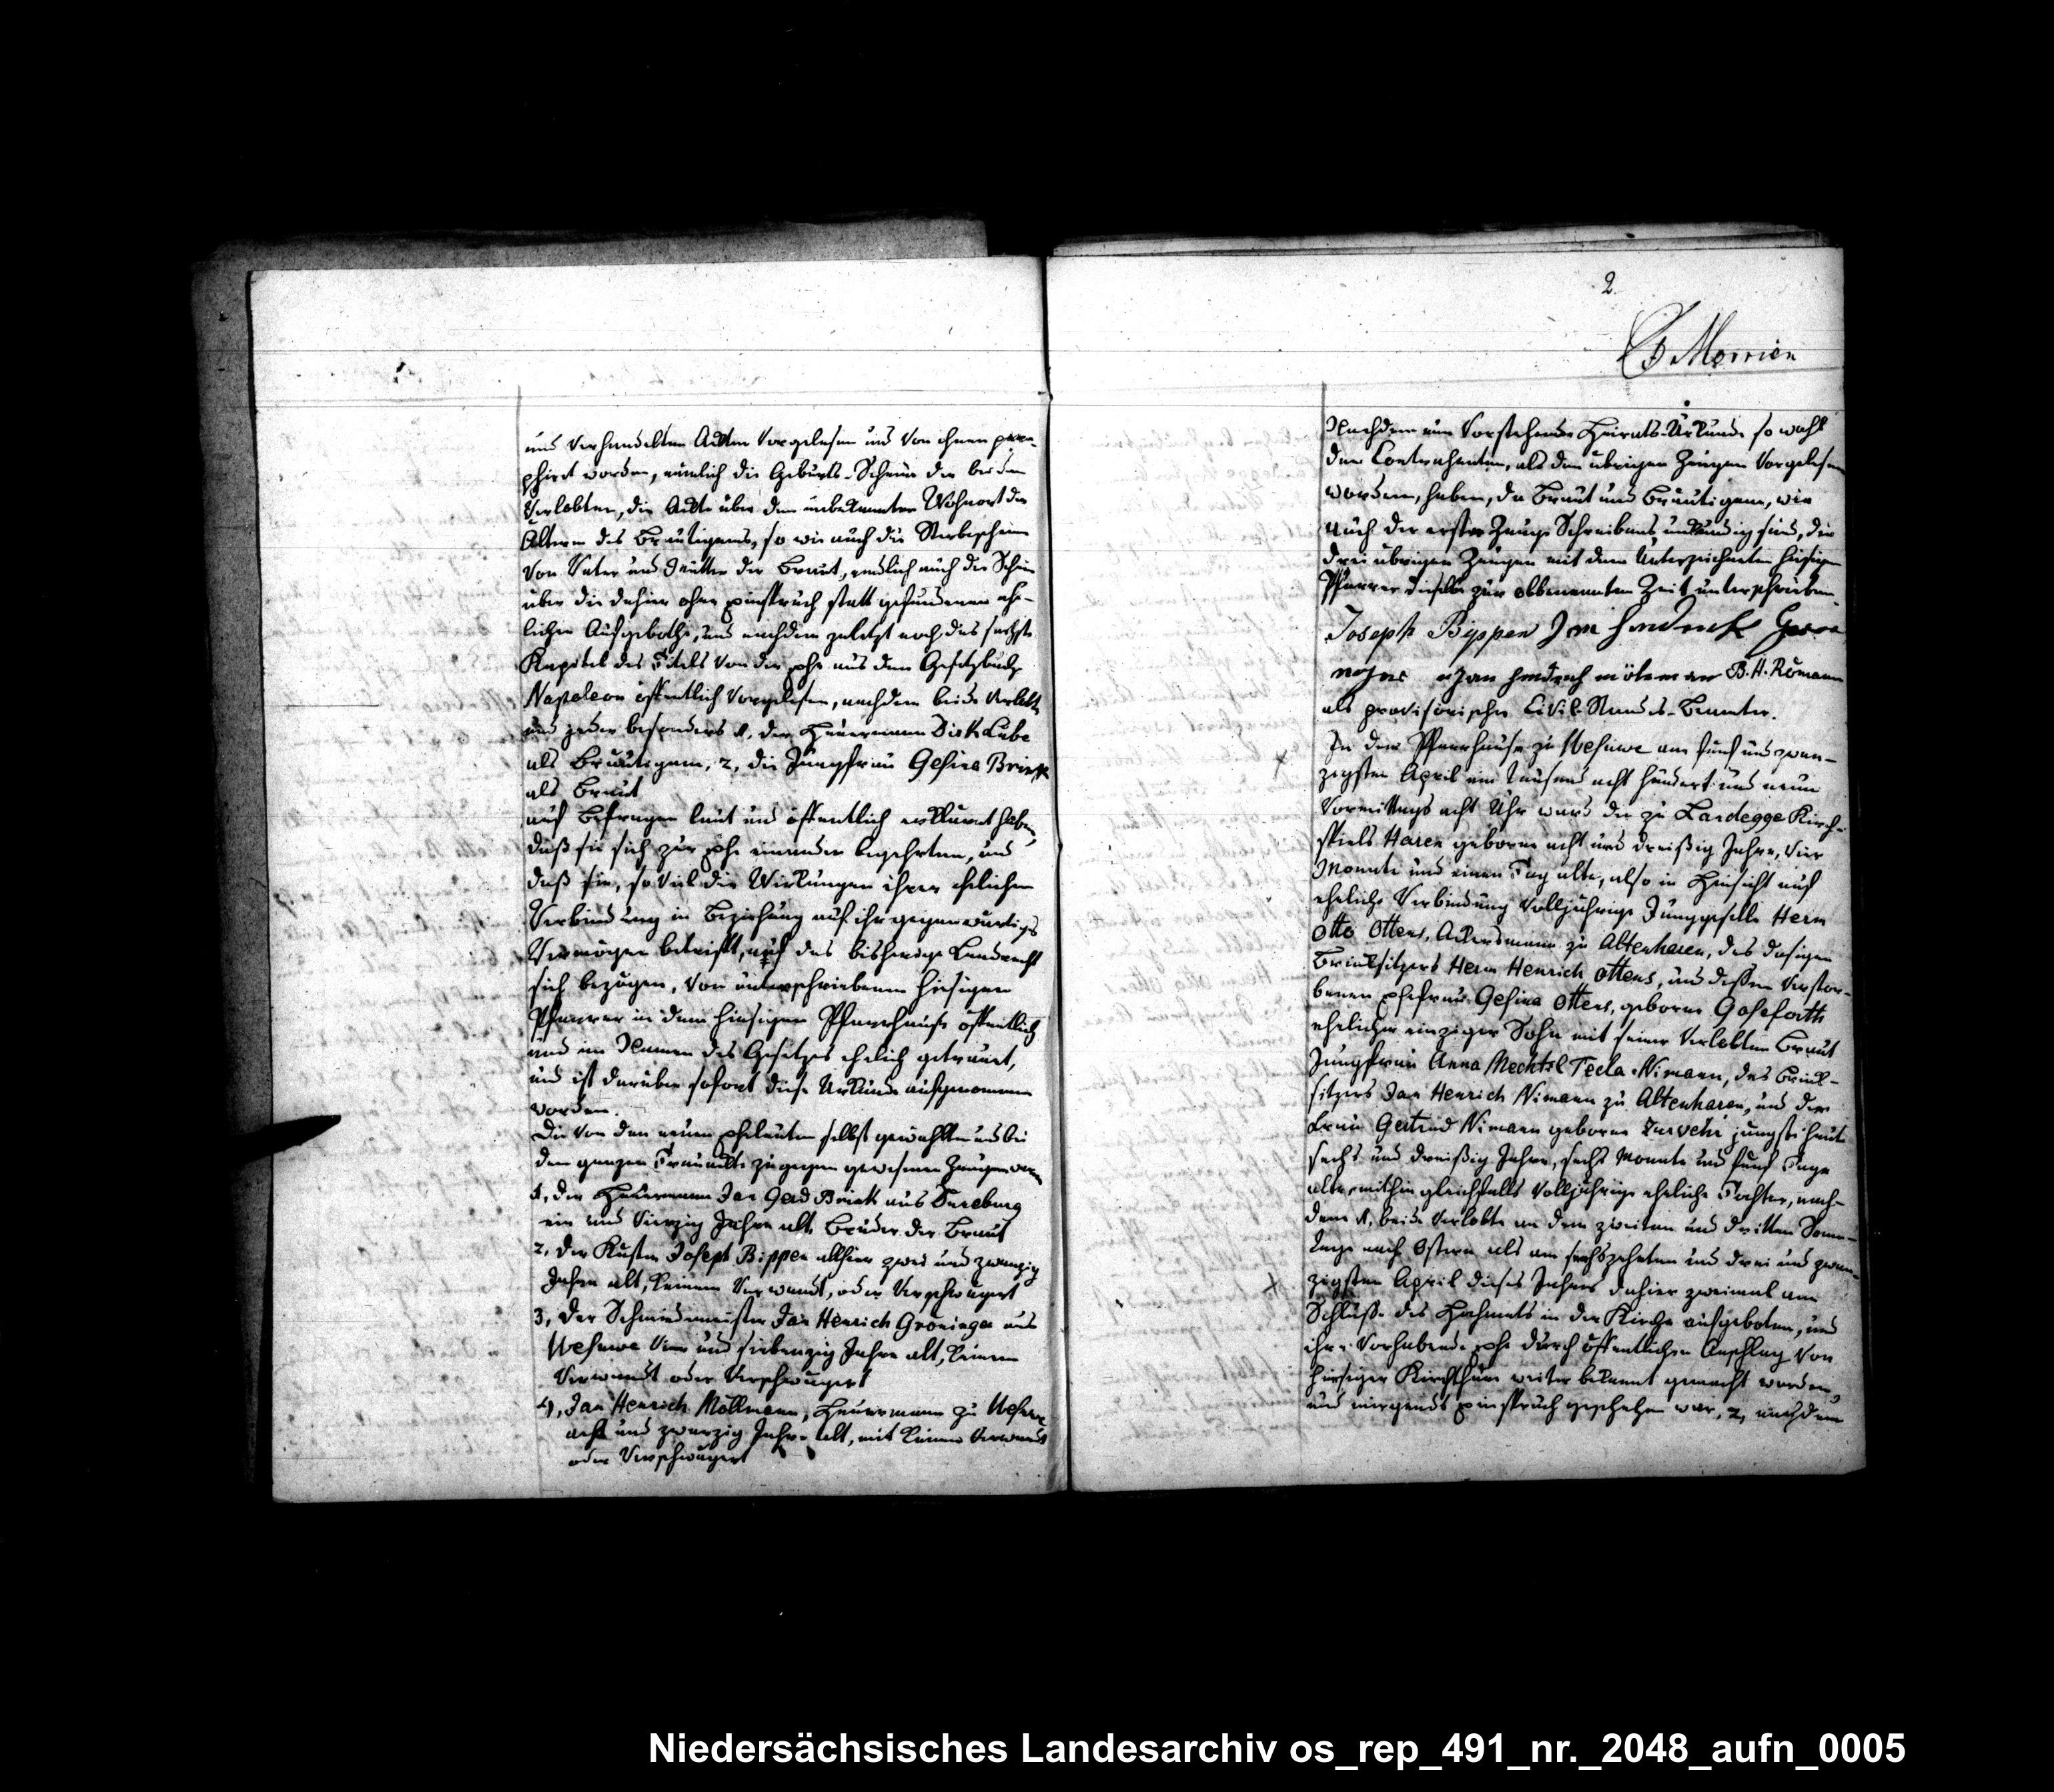 und verhandelten Ackten vorgelesen und von ihnen para-
phirt worden, nämlich die Geburts-Scheine der beiden
Verlobten, die Ackte über den unbekannten Wohnort der
Ältern des Bräutigams, so wie auch die Sterbescheine
von Vater und Mutter der Braut, endlich auch die Scheine
über die dahier ohne Einspruch statt gefundenen ehe-
lichen Aufgebothe, und nachdem zuletzt noch das sechste
Kapitel des Titels von der Ehe aus dem Gesetzbuche
Napoleon öffentlich vorgelesen, nachdem beide Verlobte
und jeder besonders 1, der Heuermann Dirk Lübe
als Bräutigam, 2, die Jungfrau Gesina Brink
als Braut
auf Befragen laut und öffentlich erklärt haben,
daß sie sich zur Ehe einander begehrten, und
daß sie, so viel die Wirkungen ihrer ehelichen
Verbindung in Beziehung auf ihr gegenwärtiges
Vermögen betrifft, auf das bisherige Landrecht
sich bezögen, von unterschriebenem hiesigen
Pfarrer in dem hiesigen Pfarrhause öffentlich
und im Namen des Gesetzes ehelich getrauet,
und ist darüber sofort diese Urkunde aufgenommen
worden.
Die von den neuen Eheleuten selbst gewählten und bei
dem ganzen Trauackte zugegen gewesenen Zeugen waren
1, der Heuermann Jan Gerd Brink aus
ein und vierzig Jahre alt, Bruder der Braut
2, der Küster Joseph Bippen allhier zwei und zwanzig
Jahre alt, keinem verwandt, oder verschwägert
3, der Schmiedemeister Jan Henrich Gröninger aus
Wesuwe vier und siebenzig Jahre alt, keinem
verwandt oder verschwägert
4, Jan Henrich Möllmann, Heuermann zu Wesuwe
acht und zwanzig Jahre alt, mit keinem verwandt
oder verschwägert
2
Morrien
Nachdem nun vorstehende Heirats-Urkunde so wohl
den Contrahenten, als den übrigen Zeugen vorgelesen
worden, haben, da Braut und Bräutigam, wie
auch der erste Zeuge Schreibens unkundig sind, die
drei übrigen Zeugen mit dem unterzeichneten hiesigen
Pfarrer dieselbe zur obbenannten Zeit unterschrieben.
Joseph Bippen Jan Hendrick
Jan Hendrich mölman B. H. Römann
als provisorischer Civil-Standes-Beamter.
In dem Pfarrhause zu Wesuwe am fünf und zwan-
zigsten April ein tausend acht hundert und neun
Vormittags acht Uhr ward der zu Landegge Kirch-
spiels Haren geborne acht und dreißig Jahre, vier
Monate und einen Tag alte, also in Hinsicht auf
eheliche Verbindung volljährige Junggeselle Herm
Otto Ottens, Ackersmann zu Altenharen, des dasigen
Brinksitzers Herm Henrich Ottens, und dessen verstor-
benen Ehefrau Gesina Ottens, geborne Goseforth
ehelicher einziger Sohn mit seiner verlobten Braut
Jungfrau Anna Mechtel Tecla Nimann, des Brink-
sitzers Jan Henrich Nimann zu Altenharen, und der
Frau Gertrud Nimann geborne Zurvehr jüngste heute
sechs und dreißig Jahre, sechs Monate und fünf Tage
alte, mithin gleichfalls volljährige eheliche Tochter, nach-
dem 1, beide Verlobte an dem zweiten und dritten Sonn-
tage nach Ostern als am sechszehnten und drei und zwan-
zigsten April dieses Jahres dahier zweimal am
Schluße des Hochamts in der Kirche aufgeboten, und
ihre vorhabende Ehe durch öffentlichen Anschlag von
hiesiger Kirchthüre weiter bekannt gemacht worden,
und nirgends Einspruch geschehen war, 2, nachdem
Niedersächsisches Landesarchiv os_rep_491_nr._2048_aufn_0005